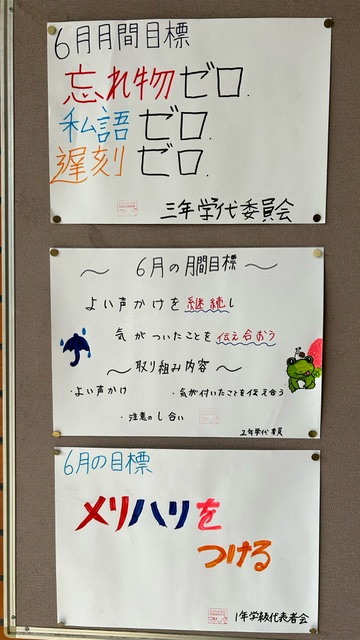 6月月間目標
忘れ物ゼロ.
私語ゼロ.
遅刻ゼロ.
三年学代委員会
～ 6月の月間目標 ～
よい声かけを継続し
気がついたことを伝え合おう
～取り組み内容～
・よい声かけ ・気が付いたことを伝え合う
・注意のし合い
2年学代委員
6月の目標
メリハリを
つける
1年学級代表者会